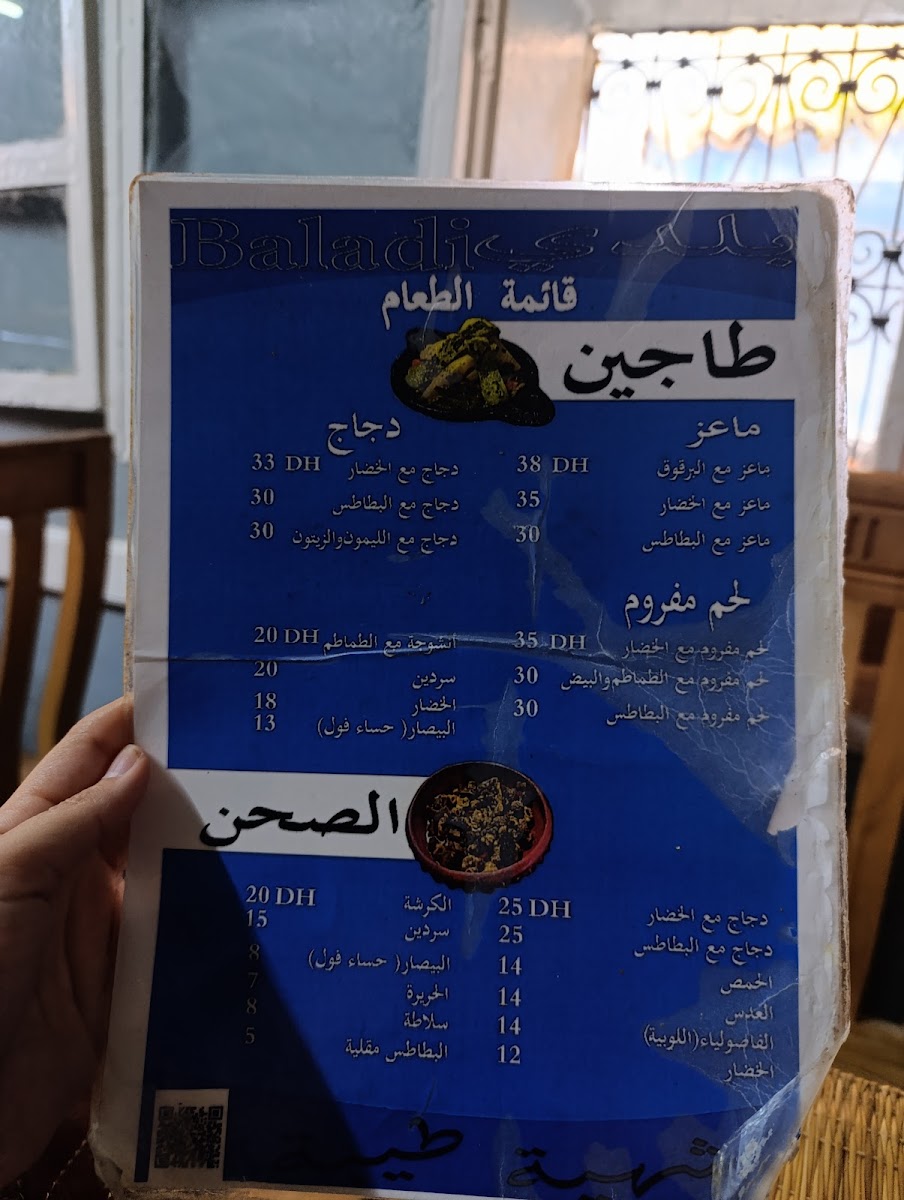 Baladi بلدي
قائمة الطعام
طاجين
ماعز
ماعز مع البرقوق 38 DH
ماعز مع الخضار 35
ماعز مع البطاطس 30
دجاج
دجاج مع الخضار 33 DH
دجاج مع البطاطس 30
دجاج مع الليمون والزيتون 30
لحم مفروم
لحم مفروم مع الخضار 35 DH
لحم مفروم مع الطماطم والبيض 30
لحم مفروم مع البطاطس 30
أنشوحة مع الطماطم 20 DH
سردين 20
الخضار 18
البيصار( حساء فول) 13
الصحن
دجاج مع الخضار 25 DH
دجاج مع البطاطس 25
الحمص 14
العدس 14
الفاصولياء(اللوبية) 14
الخضار 12
الكرشة 20 DH
سردين 15
البيصار( حساء فول) 8
الحريرة 7
سلاطة 8
البطاطس مقلية 5
شهية طيبة